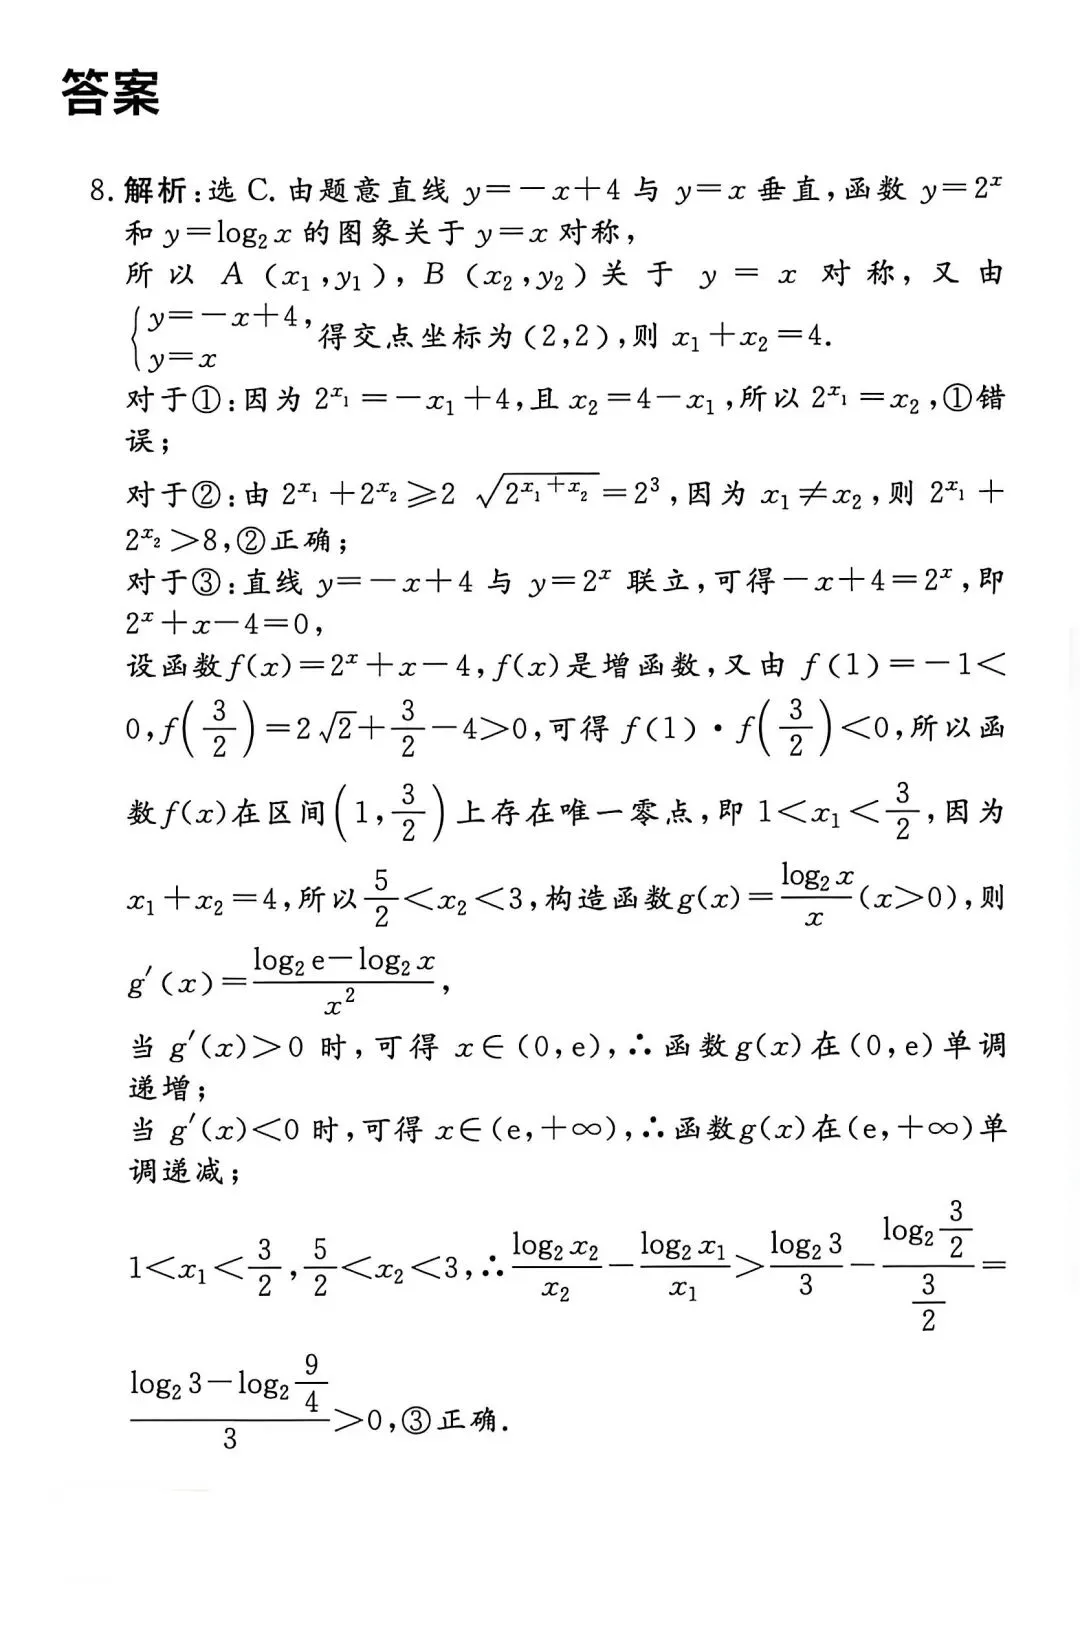 答案
8. 解析:选 C. 由题意直线 y=-x+4 与 y=x 垂直,函数 y=2ˣ
和 y=log₂x 的图象关于 y=x 对称,
所以 A (x₁,y₁), B (x₂,y₂)关于 y = x 对称, 又由
{y=-x+4, y=x 得交点坐标为(2,2),则 x₁+x₂=4.
对于①:因为 2^{x₁}=-x₁+4,且 x₂=4-x₁,所以 2^{x₁}=x₂,①错
误;
对于②:由 2^{x₁}+2^{x₂}≥2 √(2^{x₁+x₂})=2³,因为 x₁≠x₂,则 2^{x₁}+
2^{x₂}>8,②正确;
对于③:直线 y=-x+4 与 y=2ˣ 联立,可得-x+4=2ˣ,即
2ˣ+x-4=0,
设函数f(x)=2ˣ+x-4,f(x)是增函数,又由 f(1)=-1<
0,f(3/2)=2√2+3/2-4>0,可得 f(1)·f(3/2)<0,所以函
数f(x)在区间(1,3/2)上存在唯一零点,即 1<x₁<3/2,因为
x₁+x₂=4,所以5/2<x₂<3,构造函数g(x)=log₂x/x(x>0),则
g′(x)=(log₂e-log₂x)/x²,
当 g′(x)>0 时,可得 x∈(0,e),∴函数g(x)在(0,e)单调
递增;
当 g′(x)<0 时,可得 x∈(e,+∞),∴函数g(x)在(e,+∞)单
调递减;
1<x₁<3/2,5/2<x₂<3,∴log₂x₂/x₂-log₂x₁/x₁>log₂3/3-(log₂ 3/2)/(3/2)=
(log₂3-log₂ 9/4)/3>0,③正确.